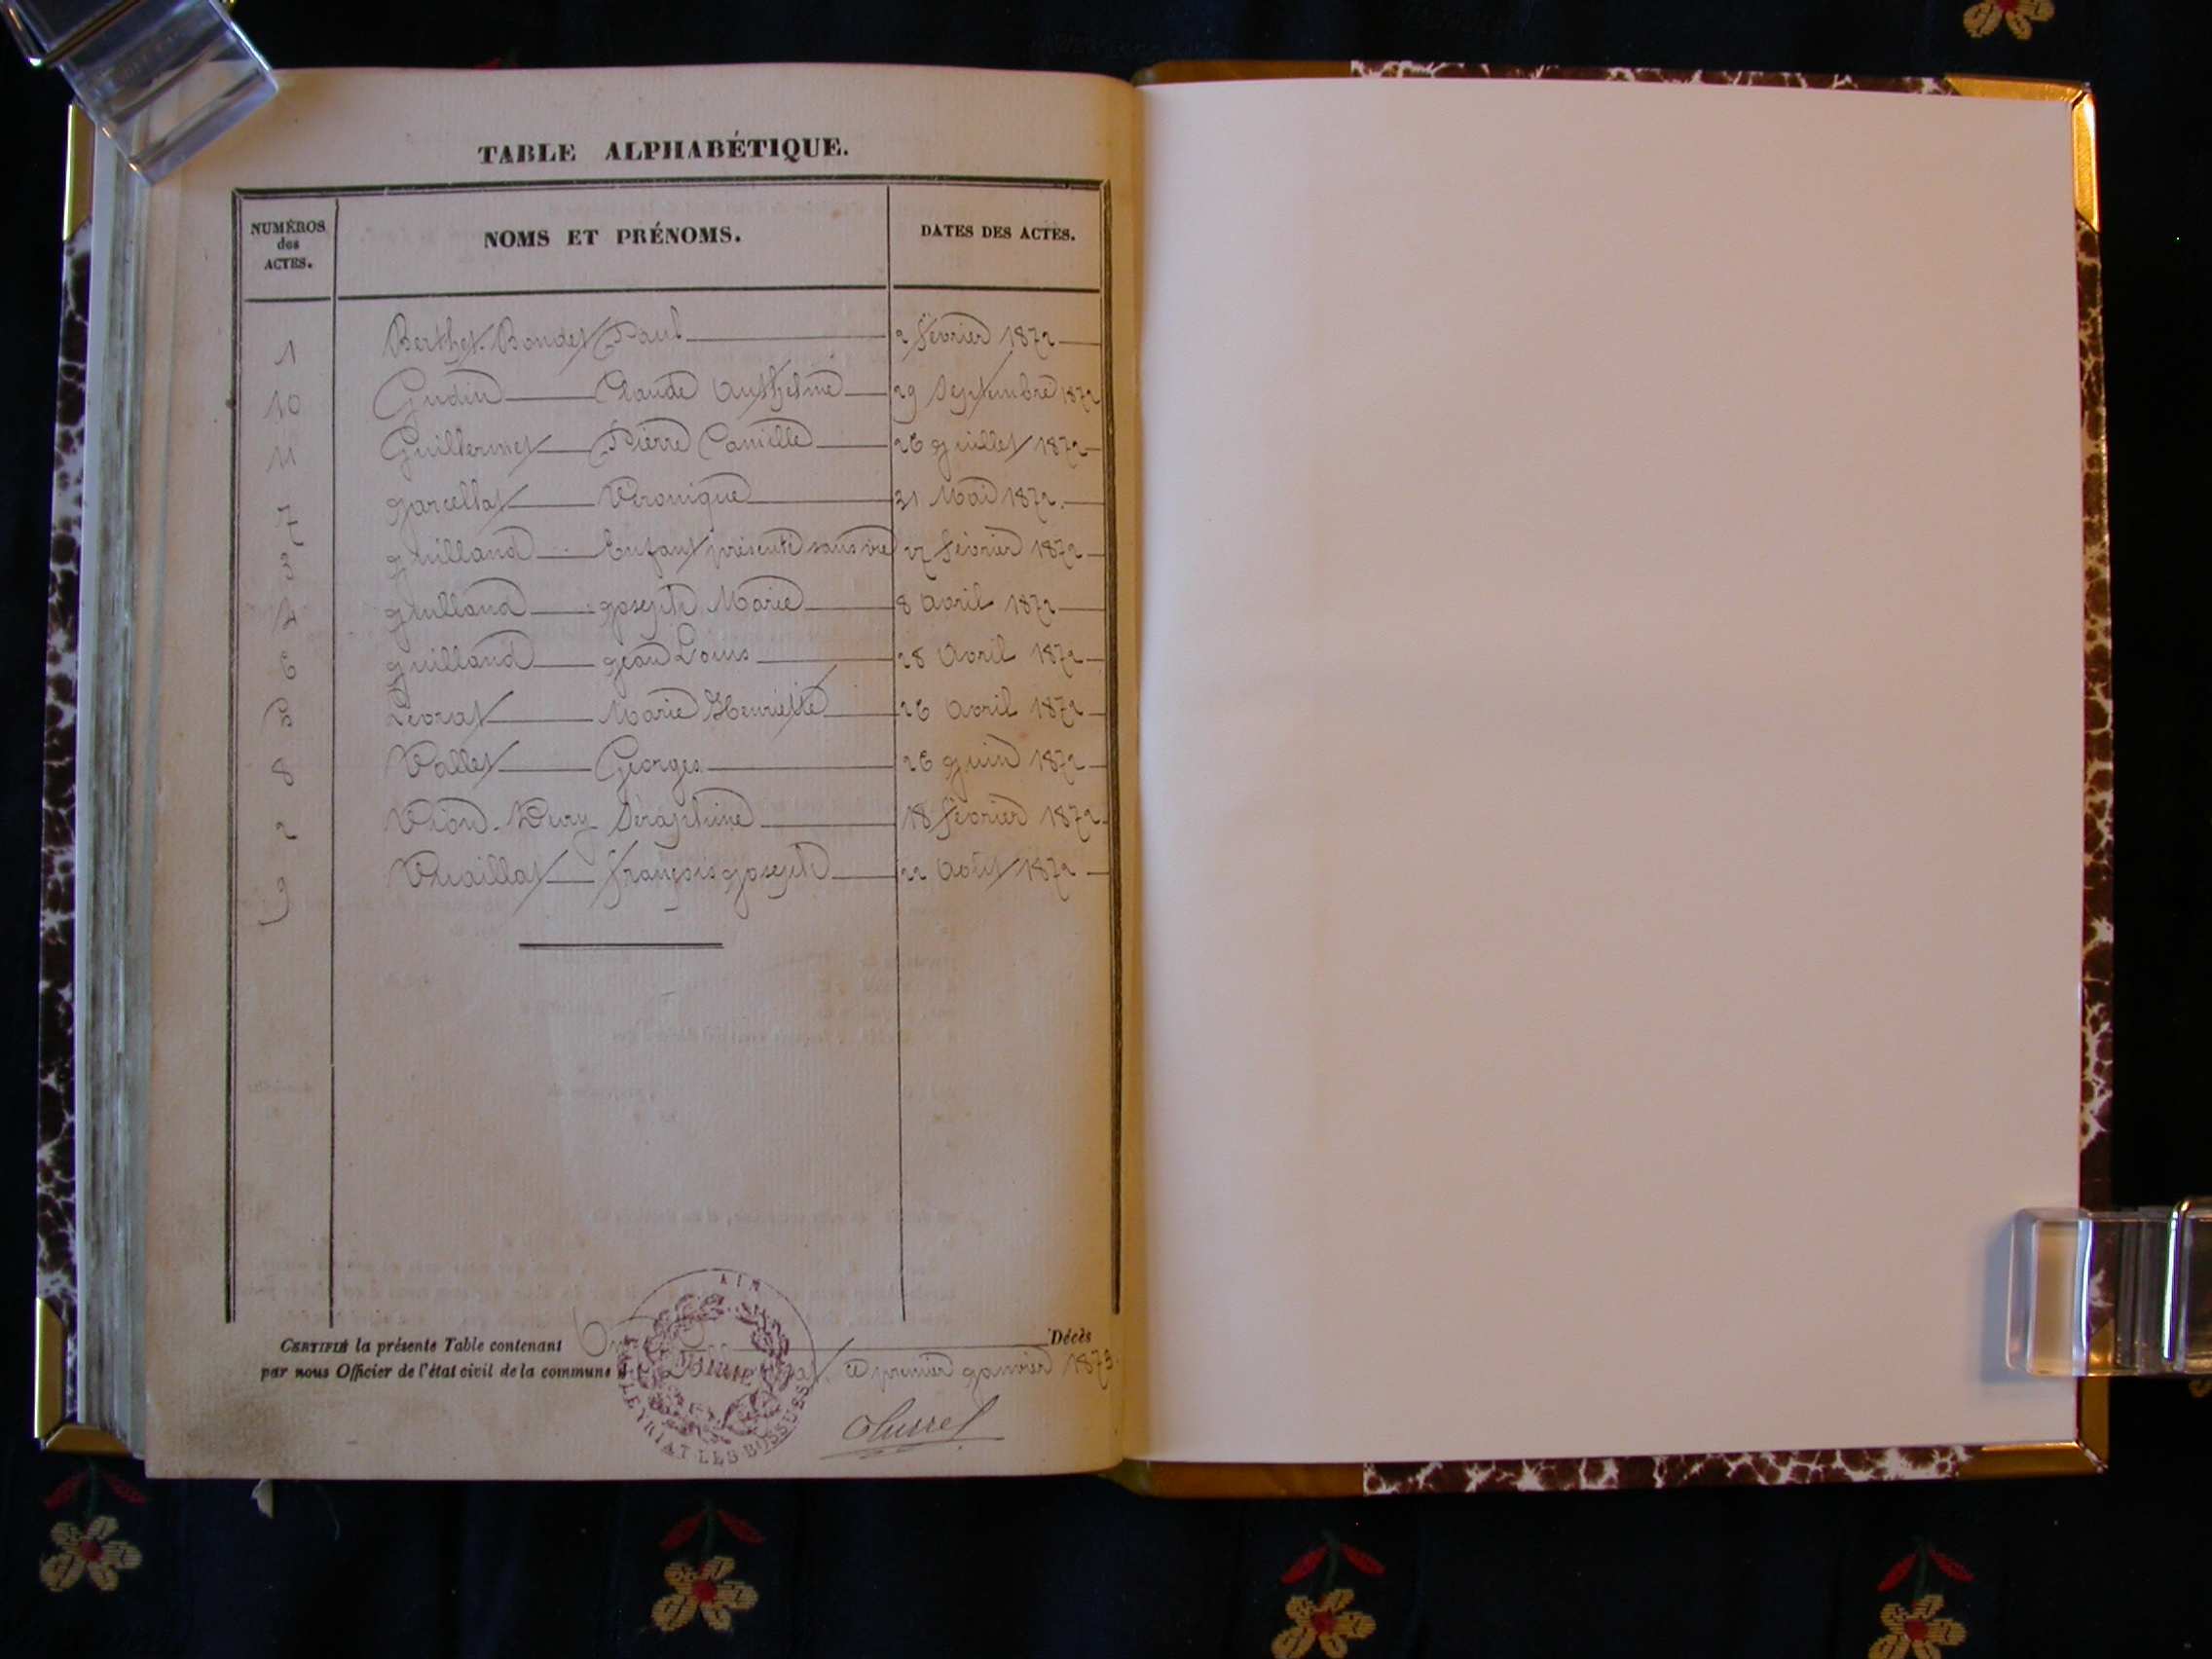 TABLE ALPHABÉTIQUE.
NUMÉROS des ACTES. NOMS ET PRÉNOMS. DATES DES ACTES.
1 Berthet-Bondet Paul 2 février 1872
10 Gudin Claude Anthelme 29 Septembre 1872
11 Guillermet Pierre Camille 26 Juillet 1872
7 Jarcellat Véronique 31 Mai 1872
3 Juilland Enfant présenté sans vie 22 février 1872
4 Juilland Joseph Marie 8 Avril 1872
6 Juilland Jean Louis 28 Avril 1872
5 Levrat Marie Henriette 26 Avril 1872
8 Vallet Georges 26 Juin 1872
2 Vion-Séraphine 18 février 1872
9 Vuaillat françois Joseph 22 Août 1872
CERTIFIÉ la présente Table contenant Décès
par nous Officier de l'état civil de la commune ce premier Janvier 1873
AIN
MAIRIE
LEYRIAT LES BOSSUES